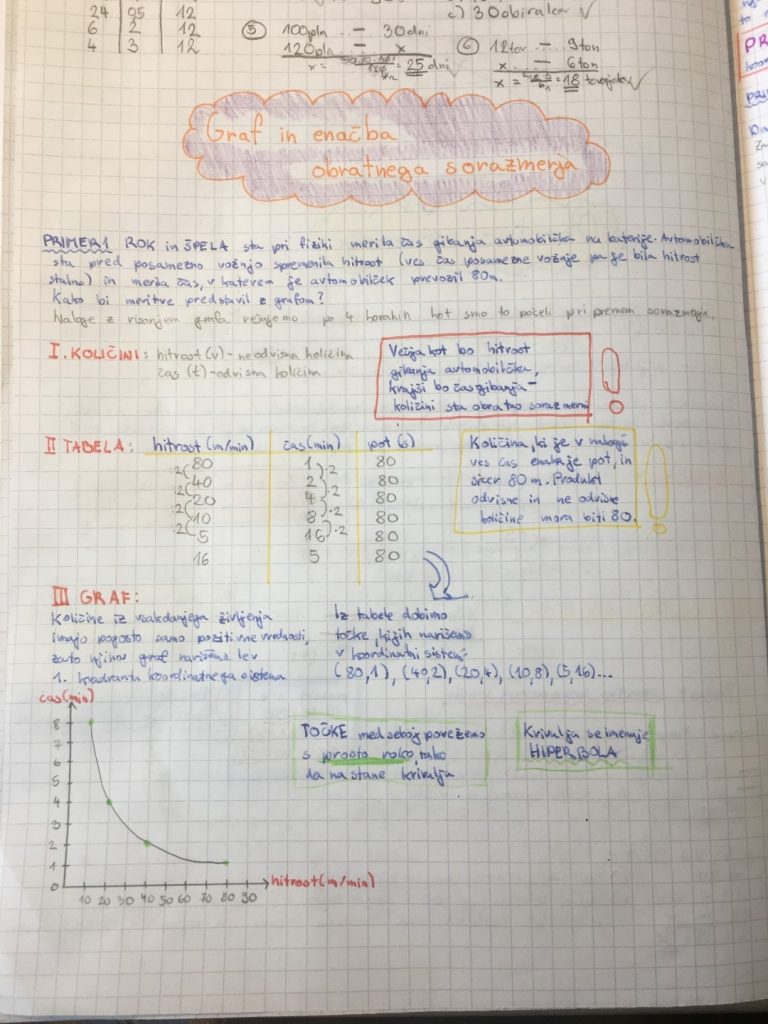 24 95 12
6 2 12
4 3 12
c) 30 obiralcev ✓
⑤ 100 pla ... – 30 dni
120 pla ... – x
x = = 25 dni ✓
⑥ 12 tov – 9 ton
x ... – 6 ton
x = = 18 tovornjakov ✓
Graf in enačba
obratnega sorazmerja
PRIMER1 ROK in ŠPELA sta pri fiziki merila čas gibanja avtomobilčka na baterije. Avtomobilčku
sta pred posamezno vožnjo spremenila hitrost (ves čas posamezne vožnje pa je bila hitrost
stalna) in merila čas, v katerem je avtomobilček prevozil 80m.
Kako bi meritve predstavil z grafom?
Naloge z risanjem grafa rešujemo po 4 korakih kot smo to počeli pri premem sorazmerju.
I. KOLIČINI: hitrost (v) - neodvisna količina
čas (t) - odvisna količina
Večja kot bo hitrost
gibanja avtomobilčka,
krajši bo čas gibanja -
količini sta obratno sorazmerni
II TABELA: hitrost (m/min) čas (min) pot (s)
80 1 80
:2 40 2 ·2 80
:2 20 4 ·2 80
:2 10 8 ·2 80
:2 5 16 ·2 80
16 5 80
Količina, ki je v nalogi
ves čas enaka je pot, in
sicer 80 m. Produkt
odvisne in ne odvisne
količine mora biti 80.
III GRAF:
Količine iz vsakdanjega življenja
imajo pogosto samo pozitivne vrednosti,
zato njihov graf narišemo le v
1. kvadrantu koordinatnega sistema
Iz tabele dobimo
točke, ki jih narišemo
v koordinatni sistem:
(80,1), (40,2), (20,4), (10,8), (5,16)...
čas (min)
8
7
6
5
4
3
2
1
0
10 20 30 40 50 60 70 80 90
hitrost (m/min)
TOČKE med seboj povežemo
s prosto roko, tako
da na stane krivulja
Krivulja se imenuje
HIPERBOLA